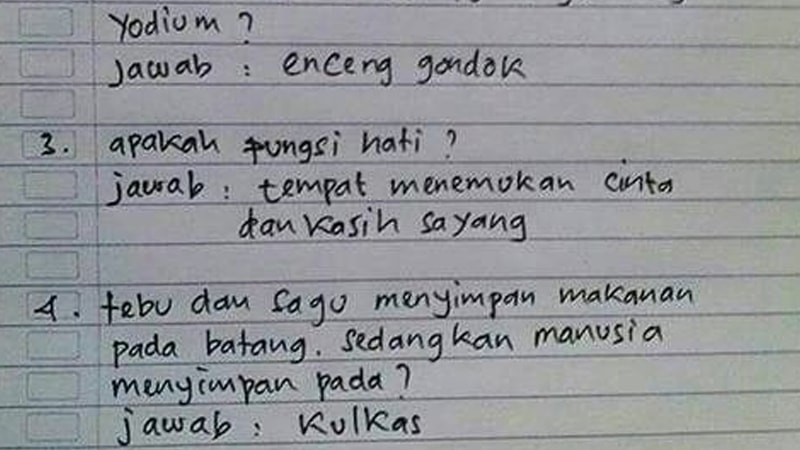 Yodium ?
jawab : enceng gondok
3. apakah fungsi hati ?
jawab : tempat menemukan cinta
dan kasih sayang
4. tebu dan sagu menyimpan makanan
pada batang. sedangkan manusia
menyimpan pada ?
jawab : kulkas